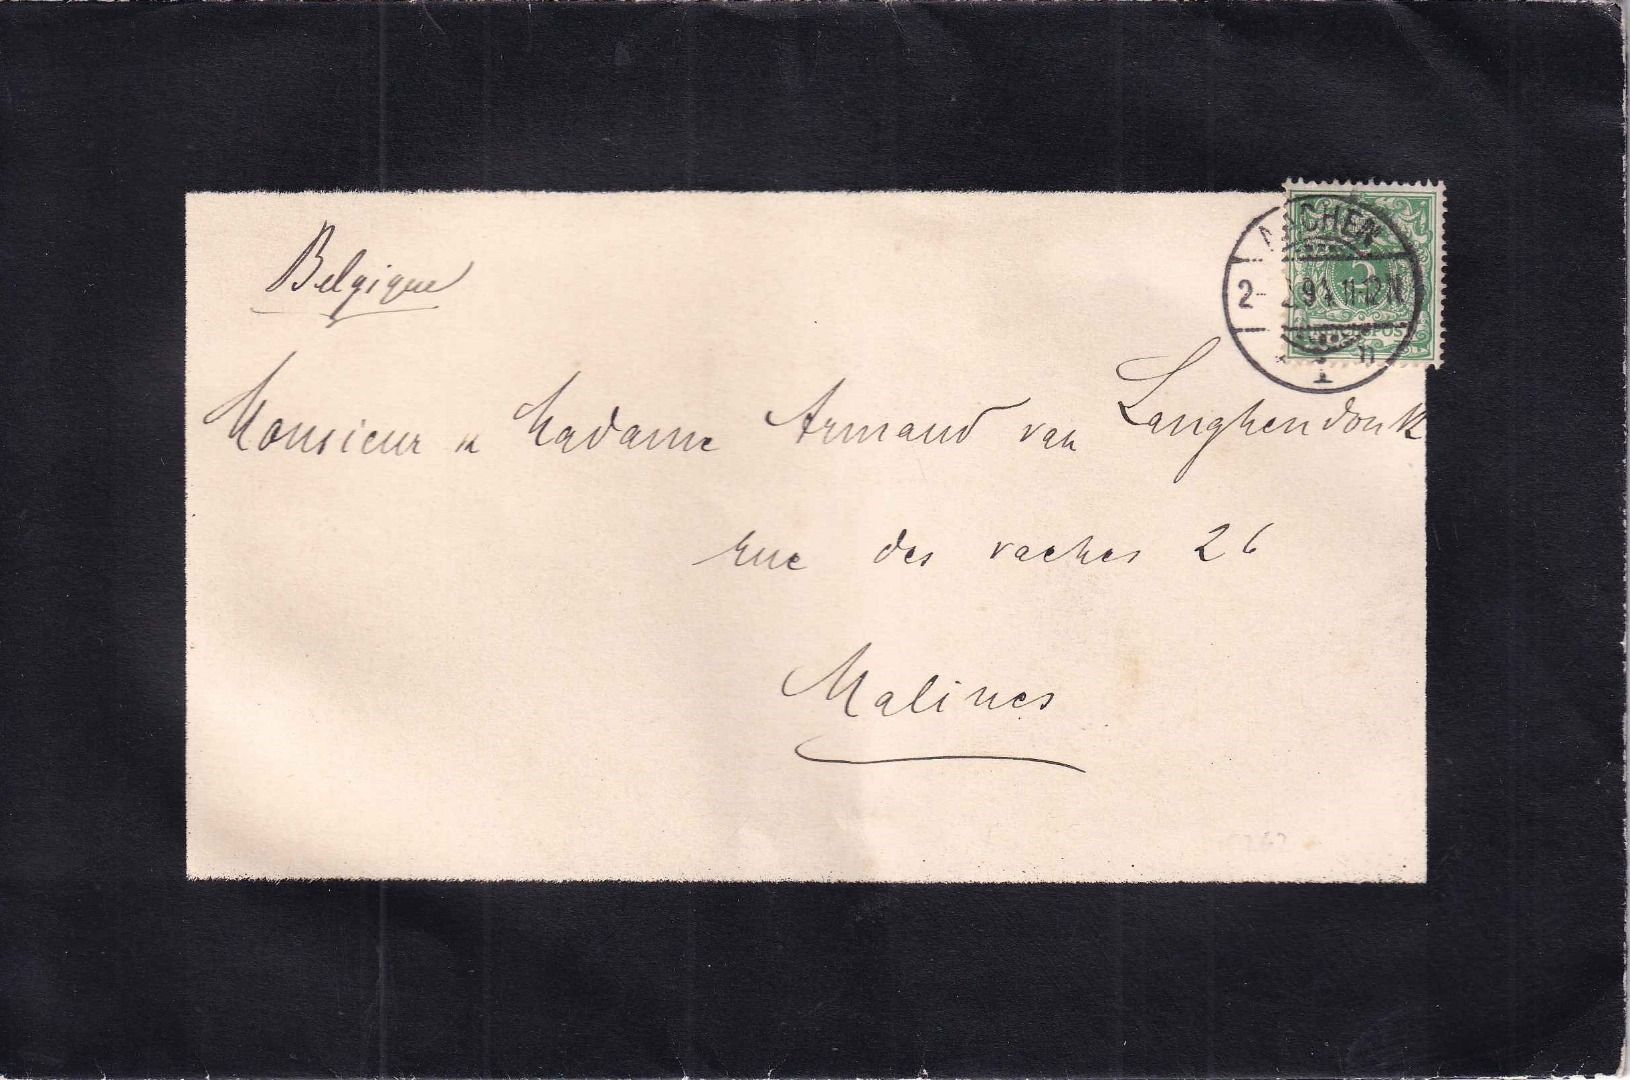 Belgique
AACHEN
2- 2 94 11-12N
1
5
REICHSPOST
Monsieur & Madame Armand van Langhendonk
rue des vaches 26
Malines